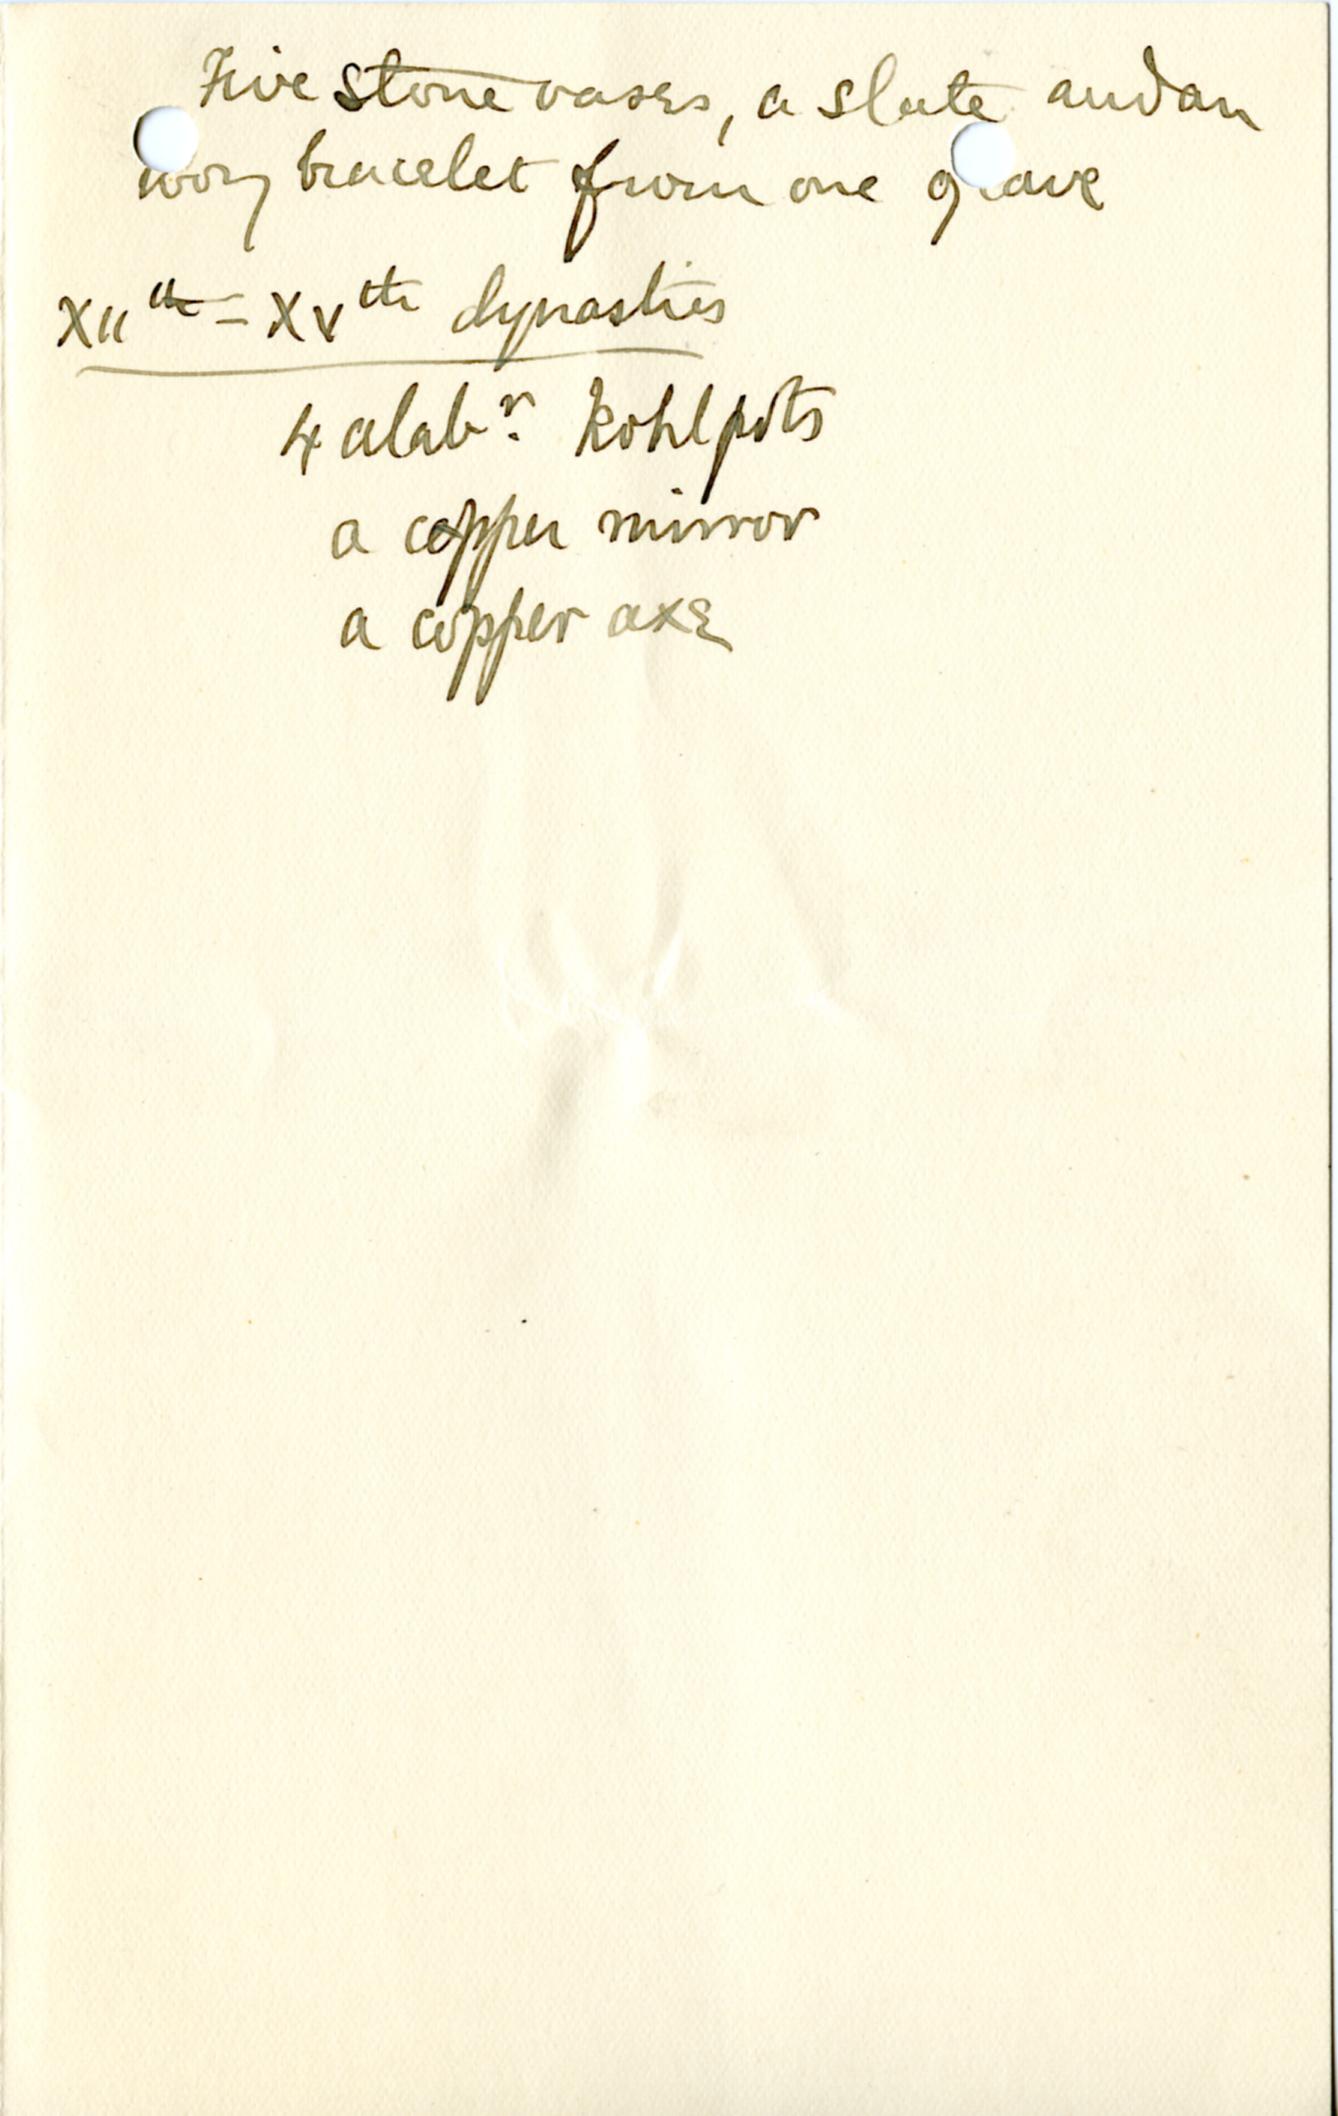 Five stone vases, a slate and an
ivory bracelet from one grave
XIIth - XVth dynasties
4 alabr. kohlpots
a copper mirror
a copper axe